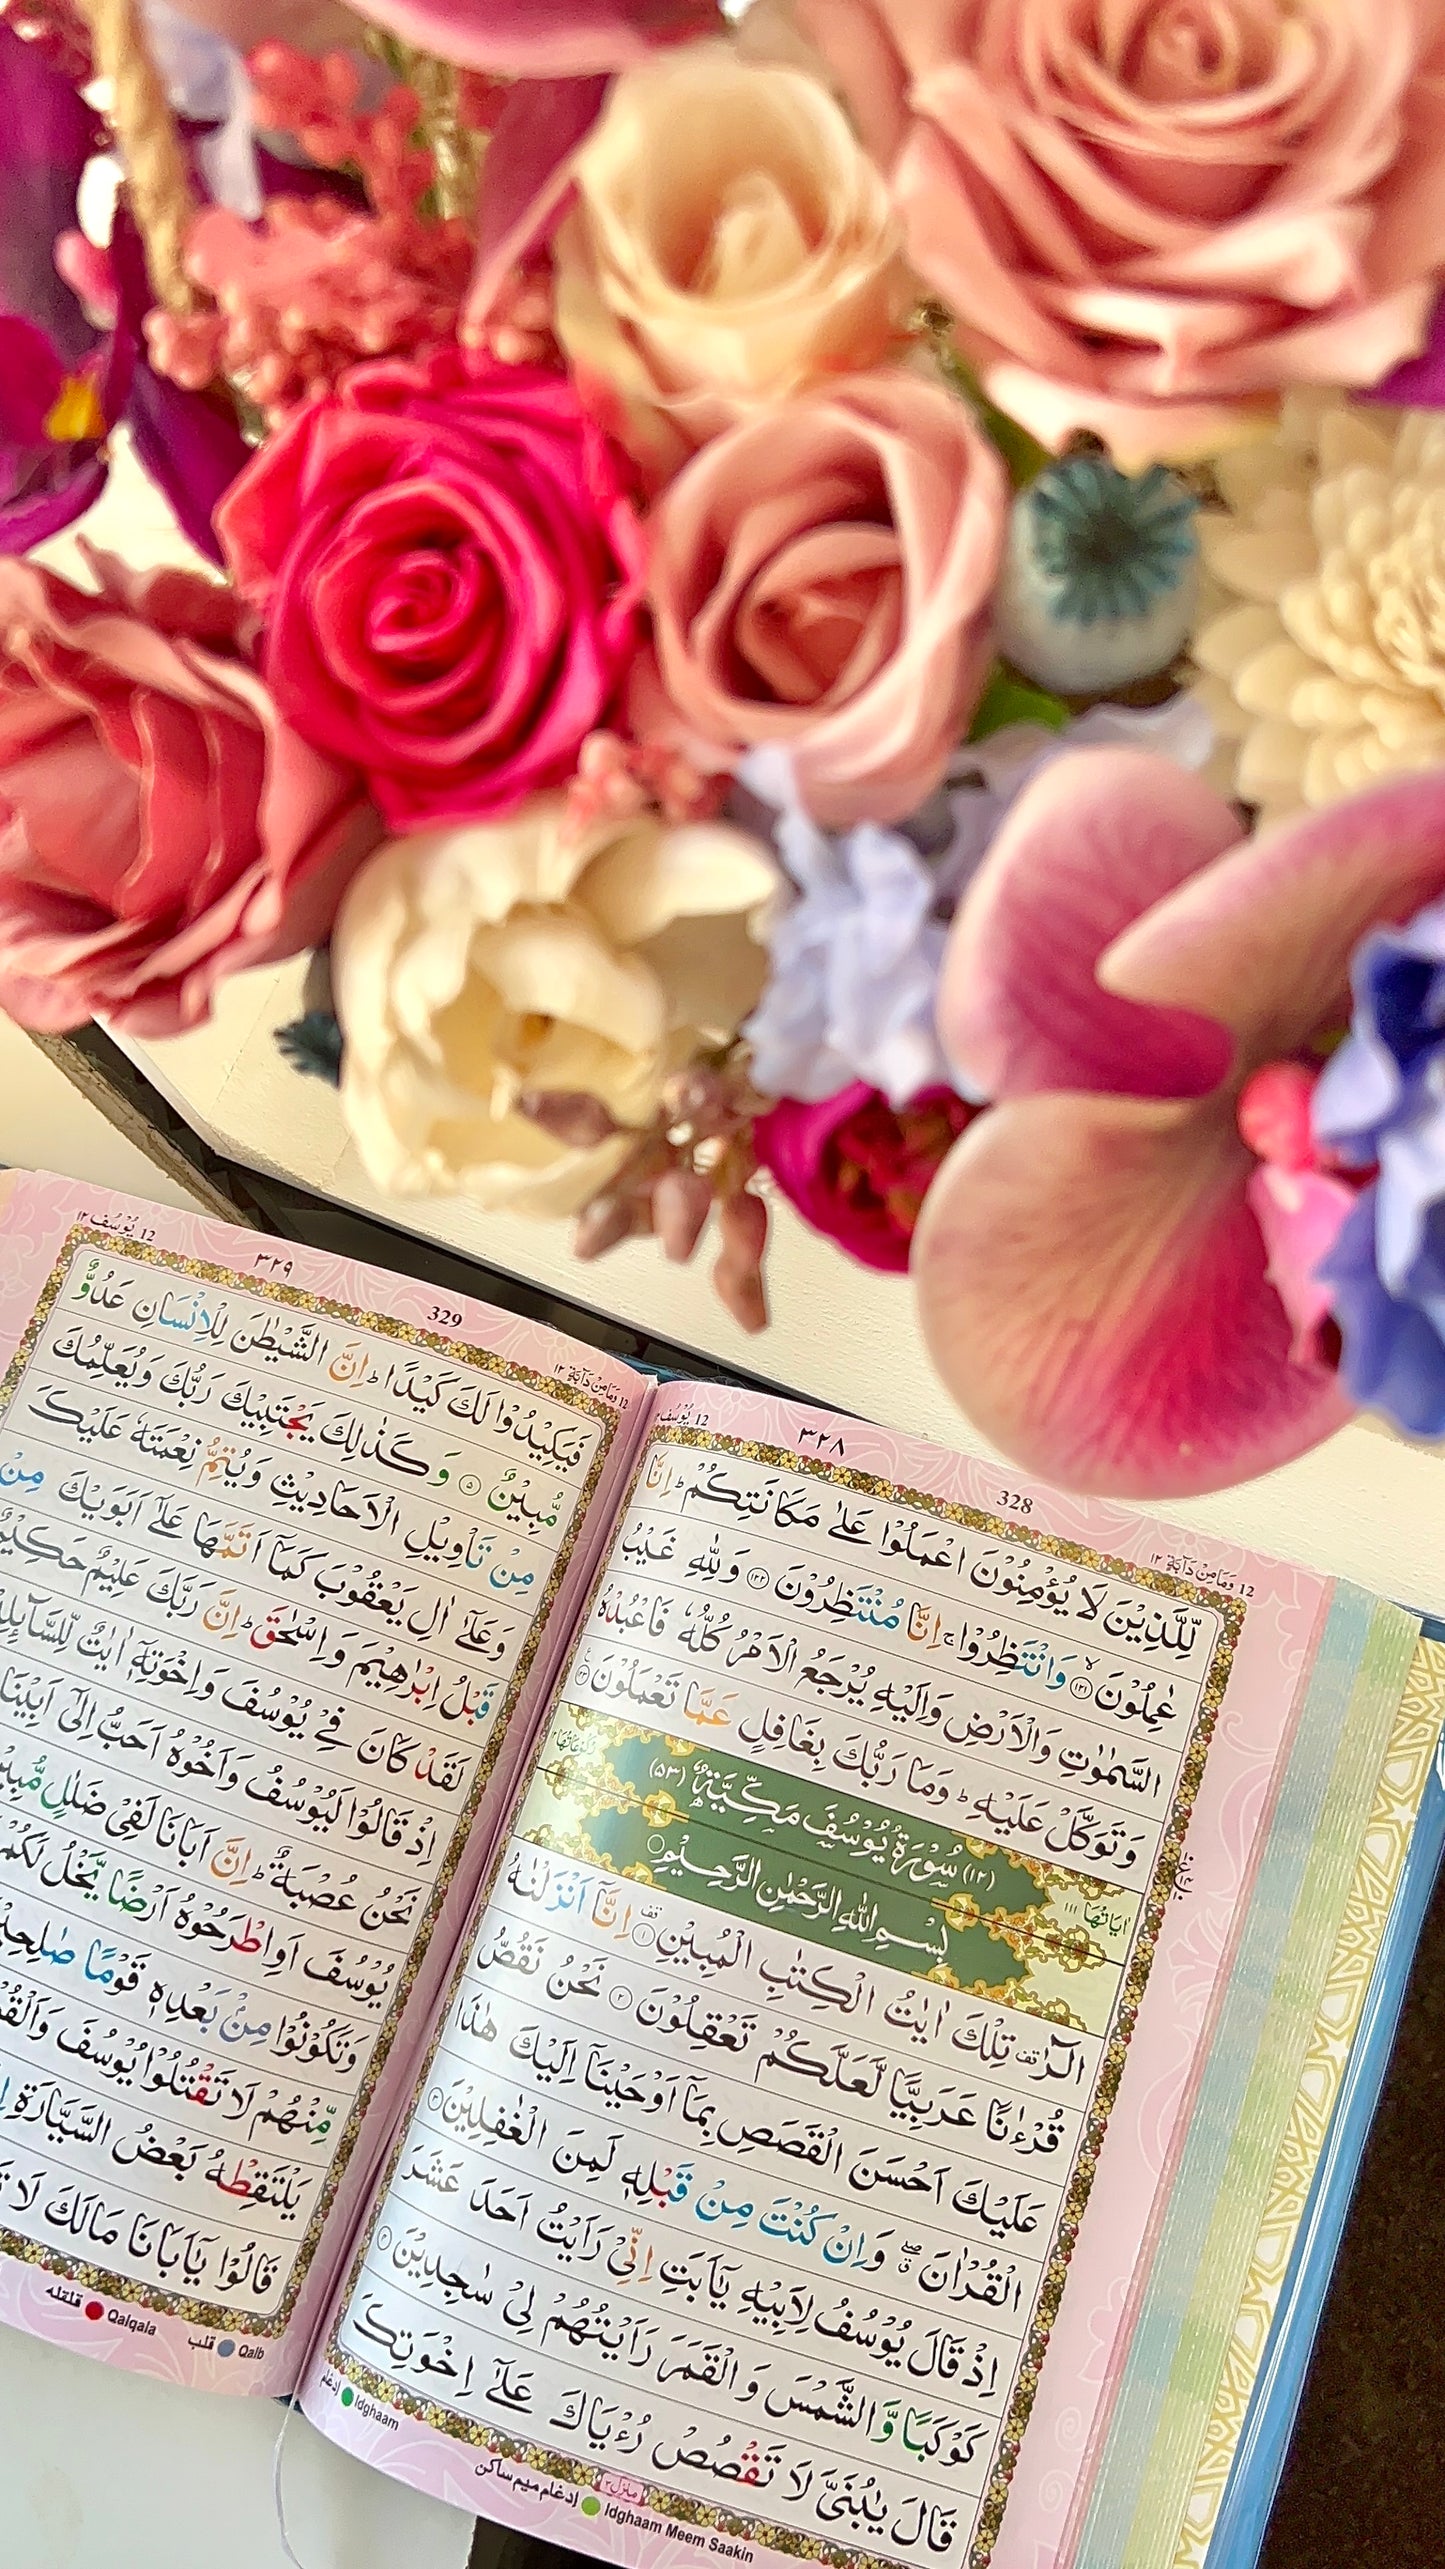 12 وَمَا مِنْ دَآبَّةٍ ١٢
328
٣٢٨
12 يُوْسُف
لِّلَّذِيْنَ لَا يُؤْمِنُوْنَ اعْمَلُوْا عَلٰى مَكَانَتِكُمْ ؕ اِنَّا
عٰمِلُوْنَ ۙ‏﴿۱۲۱﴾ وَانْتَظِرُوْا ۚ اِنَّا مُنْتَظِرُوْنَ ‏﴿۱۲۲﴾ وَلِلّٰهِ غَيْبُ
السَّمٰوٰتِ وَالْاَرْضِ وَاِلَيْهِ يُرْجَعُ الْاَمْرُ كُلُّهٗ فَاعْبُدْهُ
وَتَوَكَّلْ عَلَيْهِ ؕ وَمَا رَبُّكَ بِغَافِلٍ عَمَّا تَعْمَلُوْنَ ‏﴿۱۲۳﴾
اٰيَاتُهَا ١١١ (١٢) سُوْرَةُ يُوْسُفَ مَكِّيَّةٌ (٥٣) رُكُوْعَاتُهَا ١٢
بِسْمِ اللّٰهِ الرَّحْمٰنِ الرَّحِيْمِ
الٓرٰ ࣞ تِلْكَ اٰيٰتُ الْكِتٰبِ الْمُبِيْنِ ‏﴿۱﴾ اِنَّاۤ اَنْزَلْنٰهُ
قُرْءٰنًا عَرَبِيًّا لَّعَلَّكُمْ تَعْقِلُوْنَ ‏﴿۲﴾ نَحْنُ نَقُصُّ
عَلَيْكَ اَحْسَنَ الْقَصَصِ بِمَاۤ اَوْحَيْنَاۤ اِلَيْكَ هٰذَا
الْقُرْاٰنَ ۖ وَاِنْ كُنْتَ مِنْ قَبْلِهٖ لَمِنَ الْغٰفِلِيْنَ ‏﴿۳﴾
اِذْ قَالَ يُوْسُفُ لِاَبِيْهِ يٰۤاَبَتِ اِنِّىْ رَاَيْتُ اَحَدَ عَشَرَ
كَوْكَبًا وَّالشَّمْسَ وَالْقَمَرَ رَاَيْتُهُمْ لِىْ سٰجِدِيْنَ ‏﴿۴﴾
قَالَ يٰبُنَىَّ لَا تَقْصُصْ رُءْيَاكَ عَلٰٓى اِخْوَتِكَ
منزل ٣
Idghaam Meem Saakin إدغام ميم ساكن
Idghaam إدغام
12 وَمَا مِنْ دَآبَّةٍ ١٢
329
٣٢٩
12 يُوْسُف ١٢
فَيَكِيْدُوْا لَكَ كَيْدًا ؕ اِنَّ الشَّيْطٰنَ لِلْاِنْسَانِ عَدُوٌّ
مُّبِيْنٌ ‏﴿۵﴾ وَكَذٰلِكَ يَجْتَبِيْكَ رَبُّكَ وَيُعَلِّمُكَ
مِنْ تَاْوِيْلِ الْاَحَادِيْثِ وَيُتِمُّ نِعْمَتَهٗ عَلَيْكَ
وَعَلٰٓى اٰلِ يَعْقُوْبَ كَمَاۤ اَتَمَّهَا عَلٰٓى اَبَوَيْكَ مِنْ
قَبْلُ اِبْرٰهِيْمَ وَاِسْحٰقَ ؕ اِنَّ رَبَّكَ عَلِيْمٌ حَكِيْمٌ
لَقَدْ كَانَ فِىْ يُوْسُفَ وَاِخْوَتِهٖۤ اٰيٰتٌ لِّلسَّآئِلِيْنَ
اِذْ قَالُوْا لَيُوْسُفُ وَاَخُوْهُ اَحَبُّ اِلٰٓى اَبِيْنَا
نَحْنُ عُصْبَةٌ ؕ اِنَّ اَبَانَا لَفِىْ ضَلٰلٍ مُّبِيْنِ
يُوْسُفَ اَوِ اطْرَحُوْهُ اَرْضًا يَّخْلُ لَكُمْ
وَتَكُوْنُوْا مِنْۢ بَعْدِهٖ قَوْمًا صٰلِحِيْنَ
مِّنْهُمْ لَا تَقْتُلُوْا يُوْسُفَ وَاَلْقُوْهُ
يَلْتَقِطْهُ بَعْضُ السَّيَّارَةِ
قَالُوْا يٰۤاَبَانَا مَالَكَ لَا
Qalb قلب
Qalqala قلقله